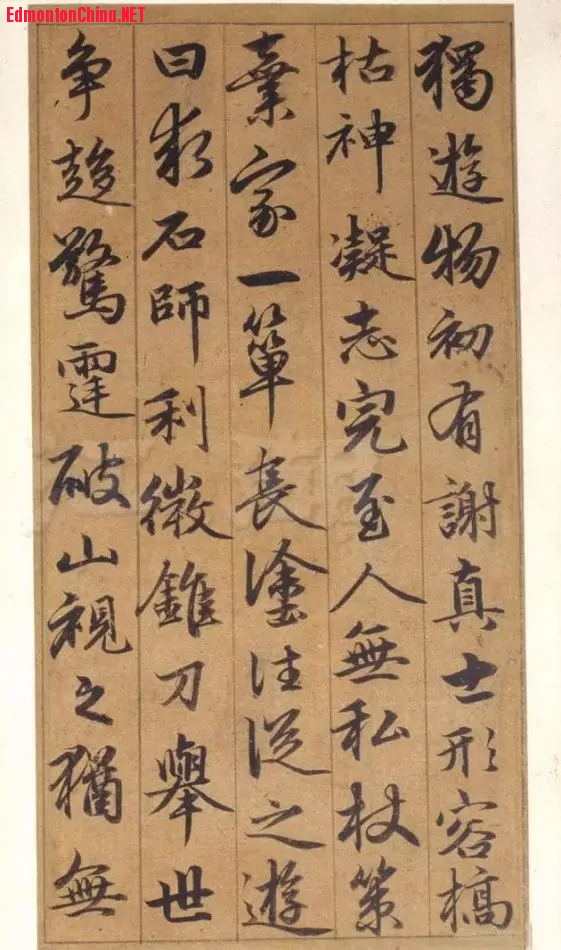 EdmontonChina.NET
獨遊物初有謝真士形容槁
枯神凝志完至人無私杖策
棄家一簞長塗往從之遊
曰求石師利微錐刀舉世
争趍驚霆破山視之猶無